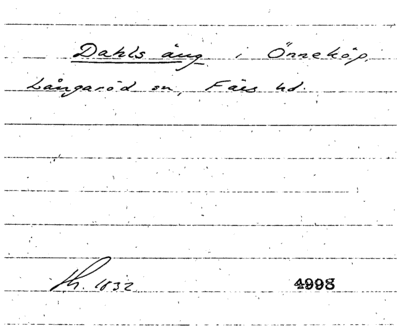 Dahls äng i Önneköp,
Långaröd sn, Färs hd.
Kh. 1832 4998